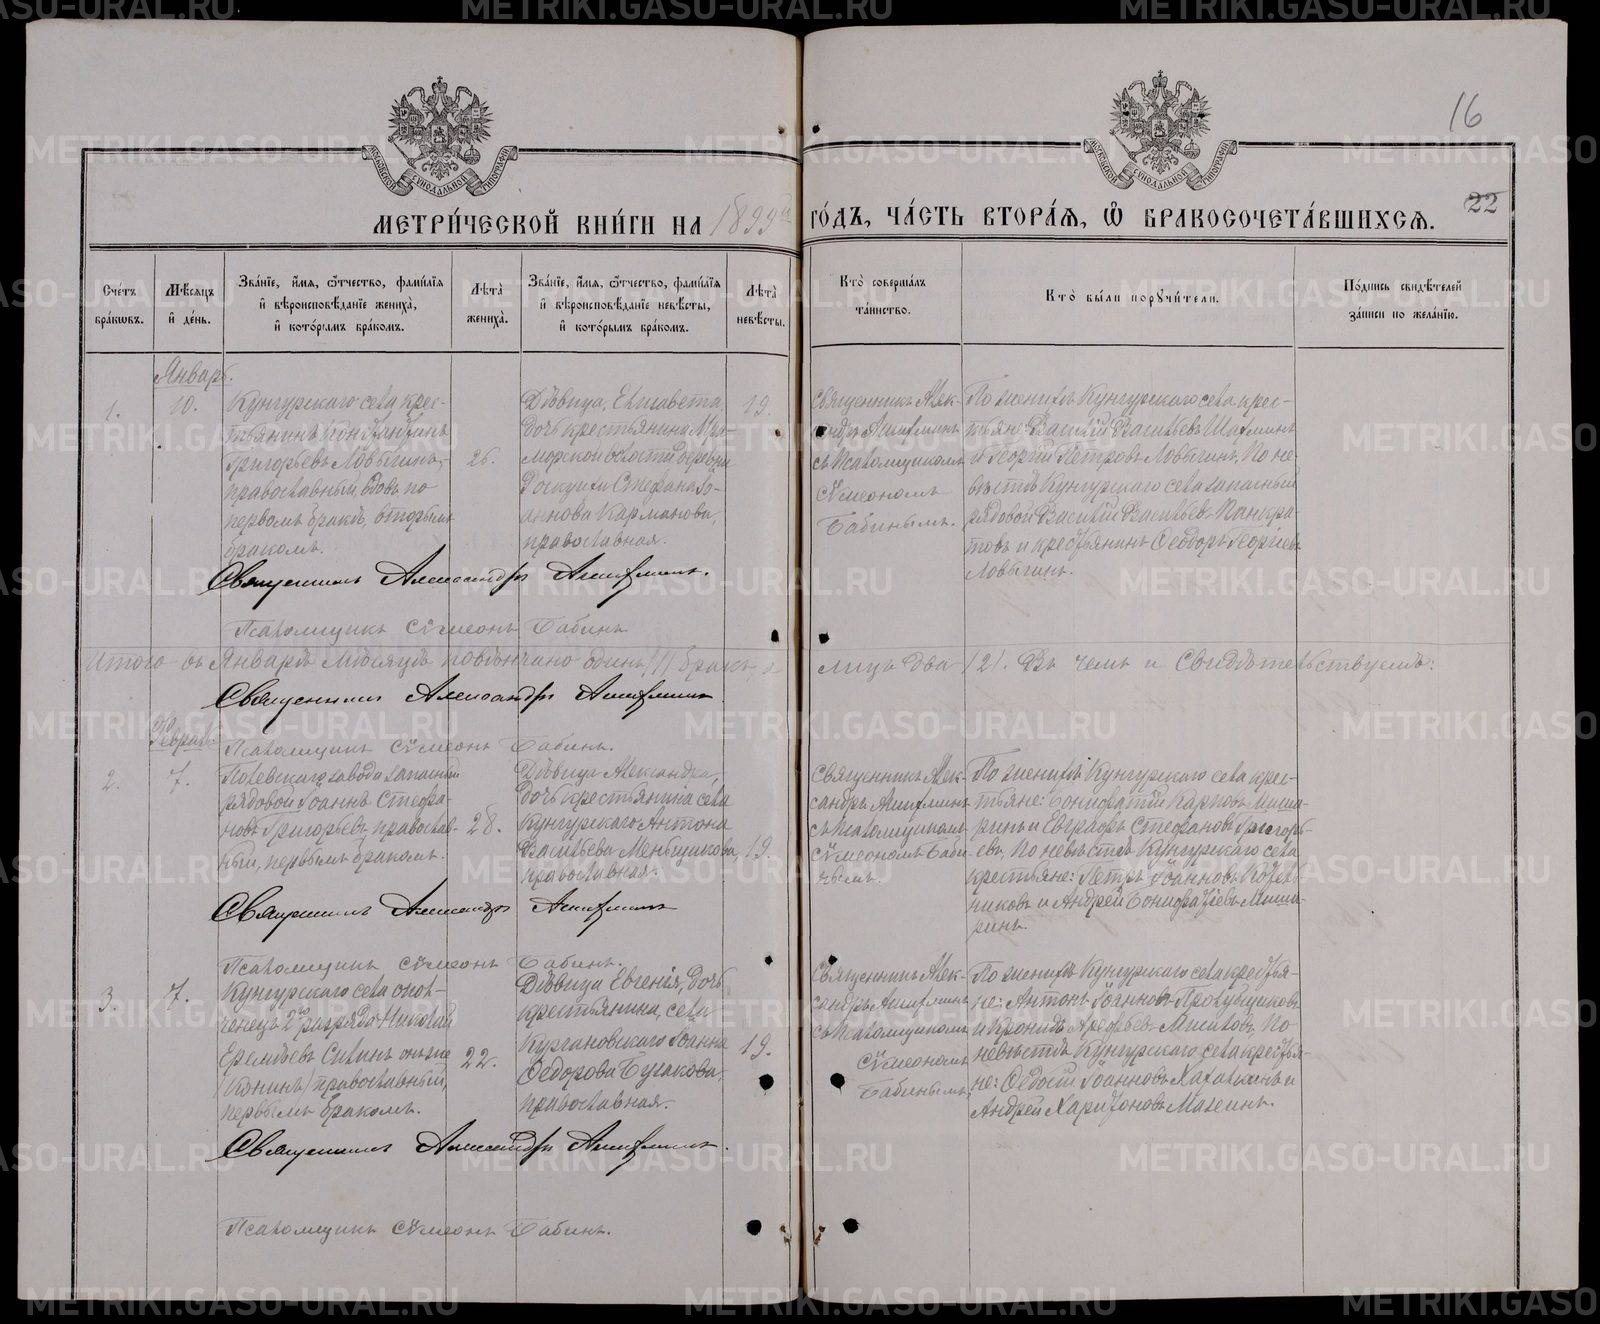 16
22
МЕТРИ́ЧЕСКОЙ КНИ́ГИ НА 1899й ГО́ДЪ, ЧА́СТЬ ВТОРА́Я, Ѡ БРАКОСОЧЕТА́ВШИХСЯ.
Сче́тъ бра́кѡвъ.
Мѣ́сяцъ и де́нь.
Зва́нїе, и́мя, ѻ́тчество, фами́лїя и вѣроисповѣ́данїе жениха̀, и кото́рымъ бра́комъ.
Лѣ́та жениха̀.
Зва́нїе, и́мя, ѻ́тчество, фами́лїя и вѣроисповѣ́данїе невѣ́сты, и кото́рымъ бра́комъ.
Лѣ́та невѣ́сты.
Кто̀ соверша́лъ та́инство.
Кто̀ бы́ли порꙋчи́тели.
По́дпись свидѣ́телей за́писи по жела́нїю.
Январь.
1.
10.
Кунгурскаго села крес-
тьянинъ Константинъ
Григорьевъ Ловыгинъ,
православный, вдовъ по
первомъ бракѣ, вторымъ
бракомъ.
26.
Дѣвица, Елисавета,
дочь крестьянина Мра-
морской волости деревни
Стефана Іо-
аннова Карманова,
православная.
19.
Священникъ Алек-
сандръ
съ псаломщикомъ
Сѵмеономъ
Бабинымъ.
По женихѣ Кунгурскаго села крес-
тьян: Василій Васильевъ
и Георгій Петровъ Ловыгинъ, По не-
вѣстѣ Кунгурскаго села запасный
рядовой Василій Васильевъ Панкра-
товъ и крестьянинъ Ѳеодоръ Георгіевъ
Ловыгинъ.
Священникъ Александръ
Псаломщикъ Сѵмеонъ Бабинъ
Итого въ Январѣ мѣсяцѣ повѣнчано одинъ /1/ бракъ, лицъ два /2/. Въ чемъ и свидѣтельствуемъ:
Священникъ Александръ
Псаломщикъ Сѵмеонъ Бабинъ.
Февраль.
2.
7.
Полевскаго завода запасный
рядовой Іоаннъ Стефа-
новъ Григорьевъ, православ-
ный, первымъ бракомъ.
28.
Дѣвица Александра,
дочь крестьянина села
Кунгурскаго Антона
Васильева Меньщикова,
православная.
19.
Священникъ Алек-
сандръ
съ псаломщикомъ
Сѵмеономъ Баби-
нымъ.
По женихѣ Кунгурскаго села крес-
тьяне: Бонифатій Карповъ Маша-
ринъ и Евграфъ Стефановъ Григорь-
евъ, По невѣстѣ Кунгурскаго села
крестьяне: Петръ Іоанновъ
никовъ и Андрей Бонифатіевъ Маша-
ринъ.
Священникъ Александръ
Псаломщикъ Сѵмеонъ Бабинъ.
3.
7.
Кунгурскаго села опол-
ченецъ 2го разряда Николай
Еремѣевъ Сивинъ онъ же
(Конинъ) православный,
первымъ бракомъ.
22.
Дѣвица Евгенія, дочь
крестьянина, села
Кургановскаго Іоанна
Ѳедорова Булакова,
православная.
19.
Священникъ Алек-
сандръ
съ псаломщикомъ
Сѵмеономъ
Бабинымъ
По женихѣ Кунгурскаго села крестья-
не: Антонъ Іоанновъ
и Кронидъ Арефьевъ По
невѣстѣ Кунгурскаго села крестья-
не: Іоанновъ и
Андрей Харитоновъ
Священникъ Александръ
Псаломщикъ Сѵмеонъ Бабинъ.
METRIKI.GASO-URAL.RU